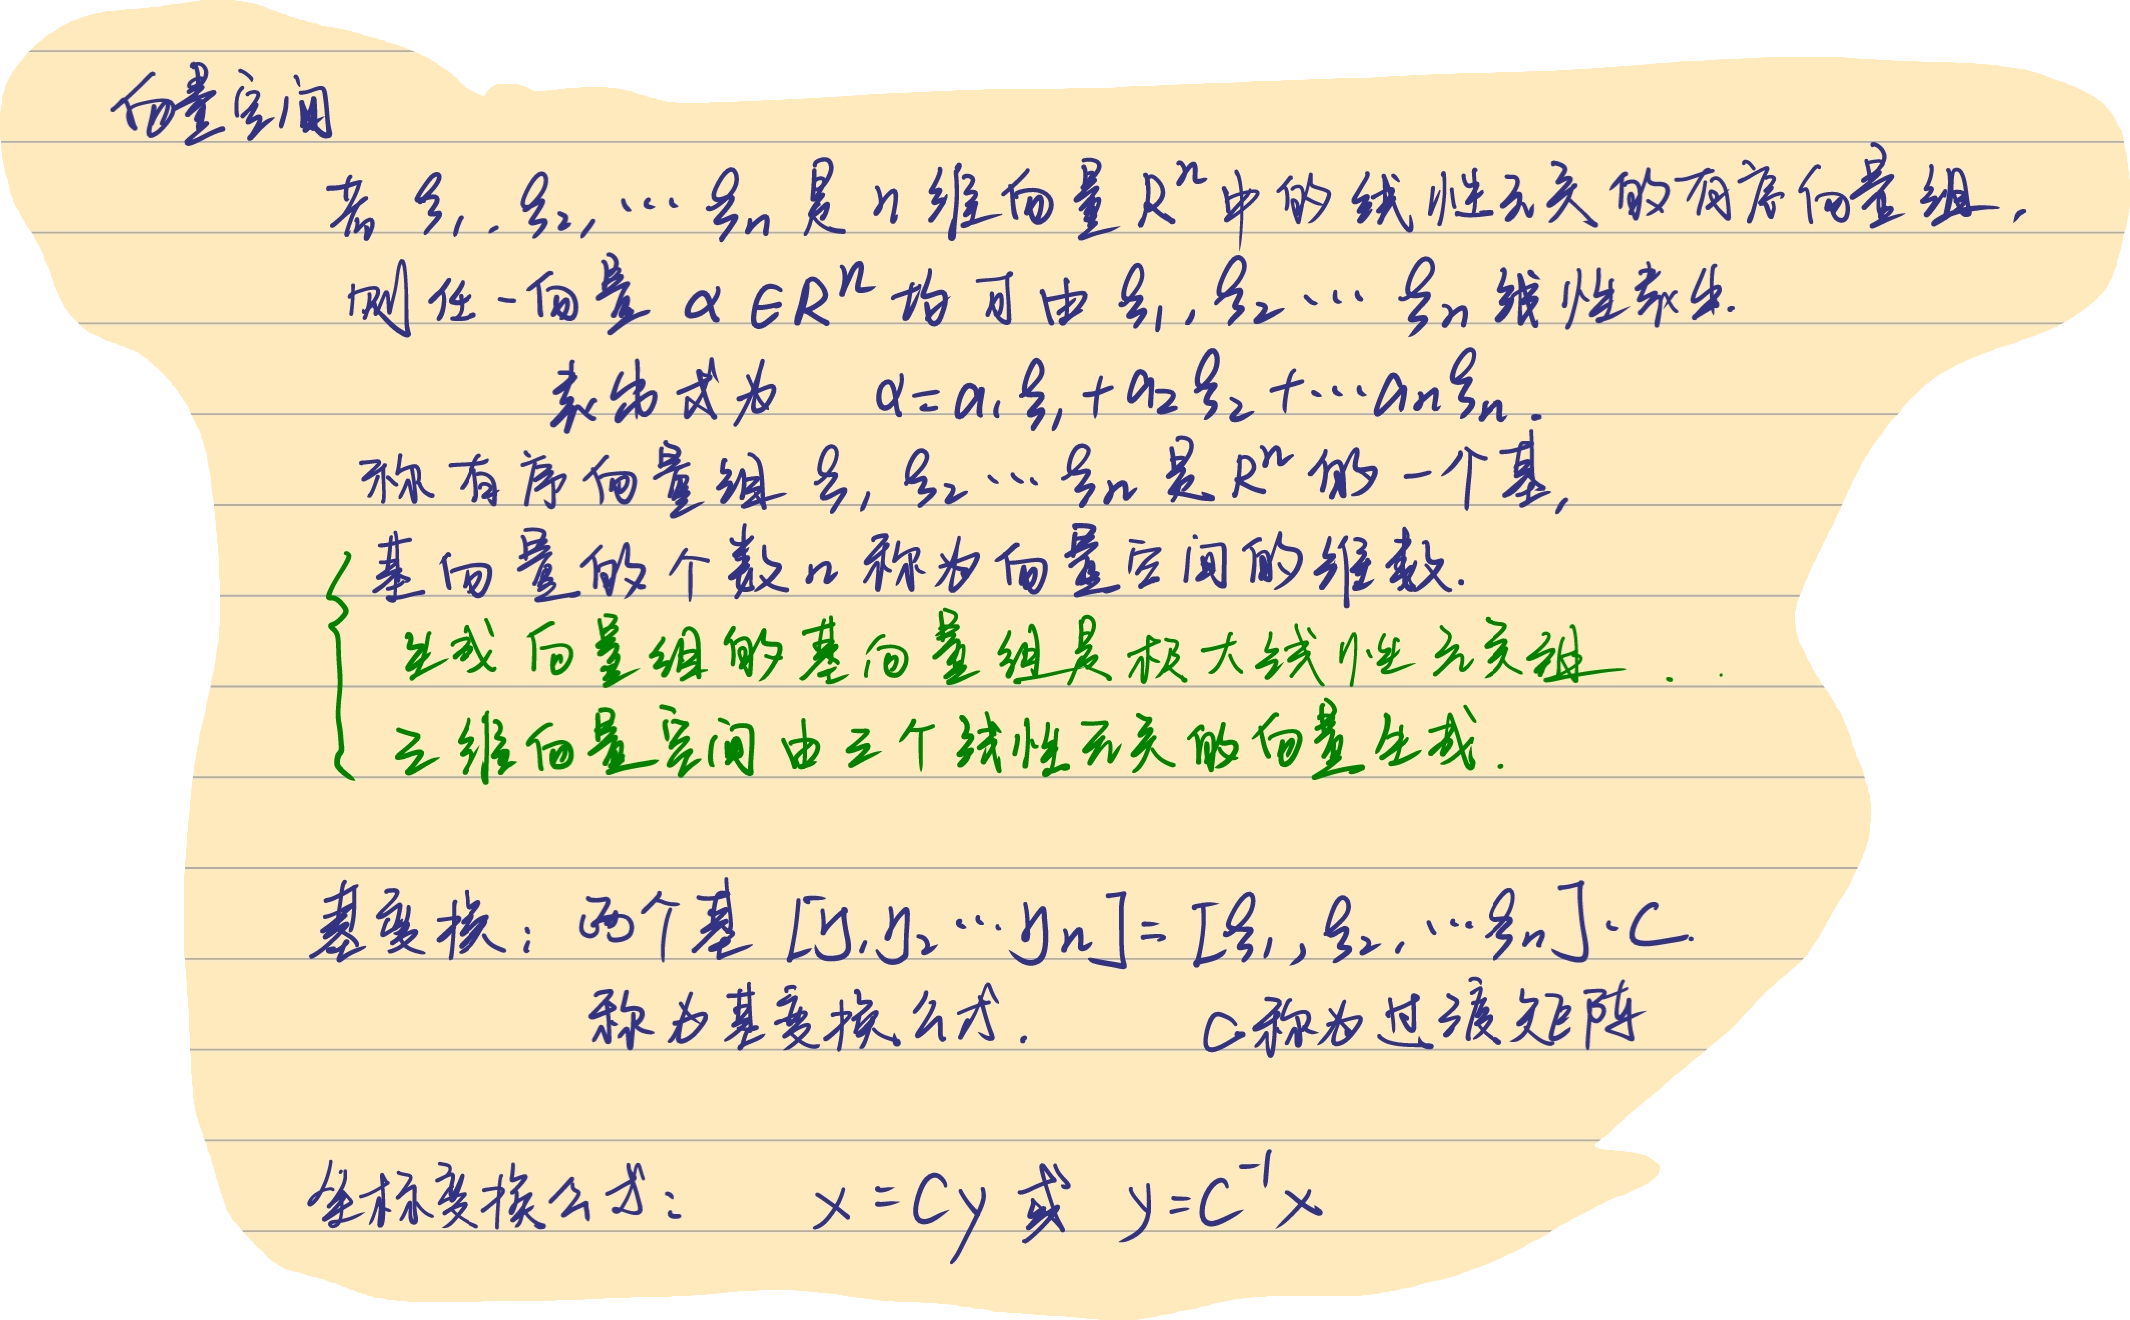 向量空间
若 ξ₁, ξ₂, … ξₙ 是 n 维向量 Rⁿ 中的线性无关的有序向量组,
则任一向量 α ∈ Rⁿ 均可由 ξ₁, ξ₂ … ξₙ 线性表出.
表出式为 α = a₁ξ₁ + a₂ξ₂ + … aₙξₙ.
称有序向量组 ξ₁, ξ₂ … ξₙ 是 Rⁿ 的一个基,
基向量的个数 n 称为向量空间的维数.
生成向量组的基向量组是极大线性无关组.
三维向量空间由三个线性无关的向量生成.
基变换: 两个基 [η₁, η₂ … ηₙ] = [ξ₁, ξ₂, … ξₙ]·C.
称为基变换公式. C称为过渡矩阵
坐标变换公式: x = Cy 或 y = C⁻¹x